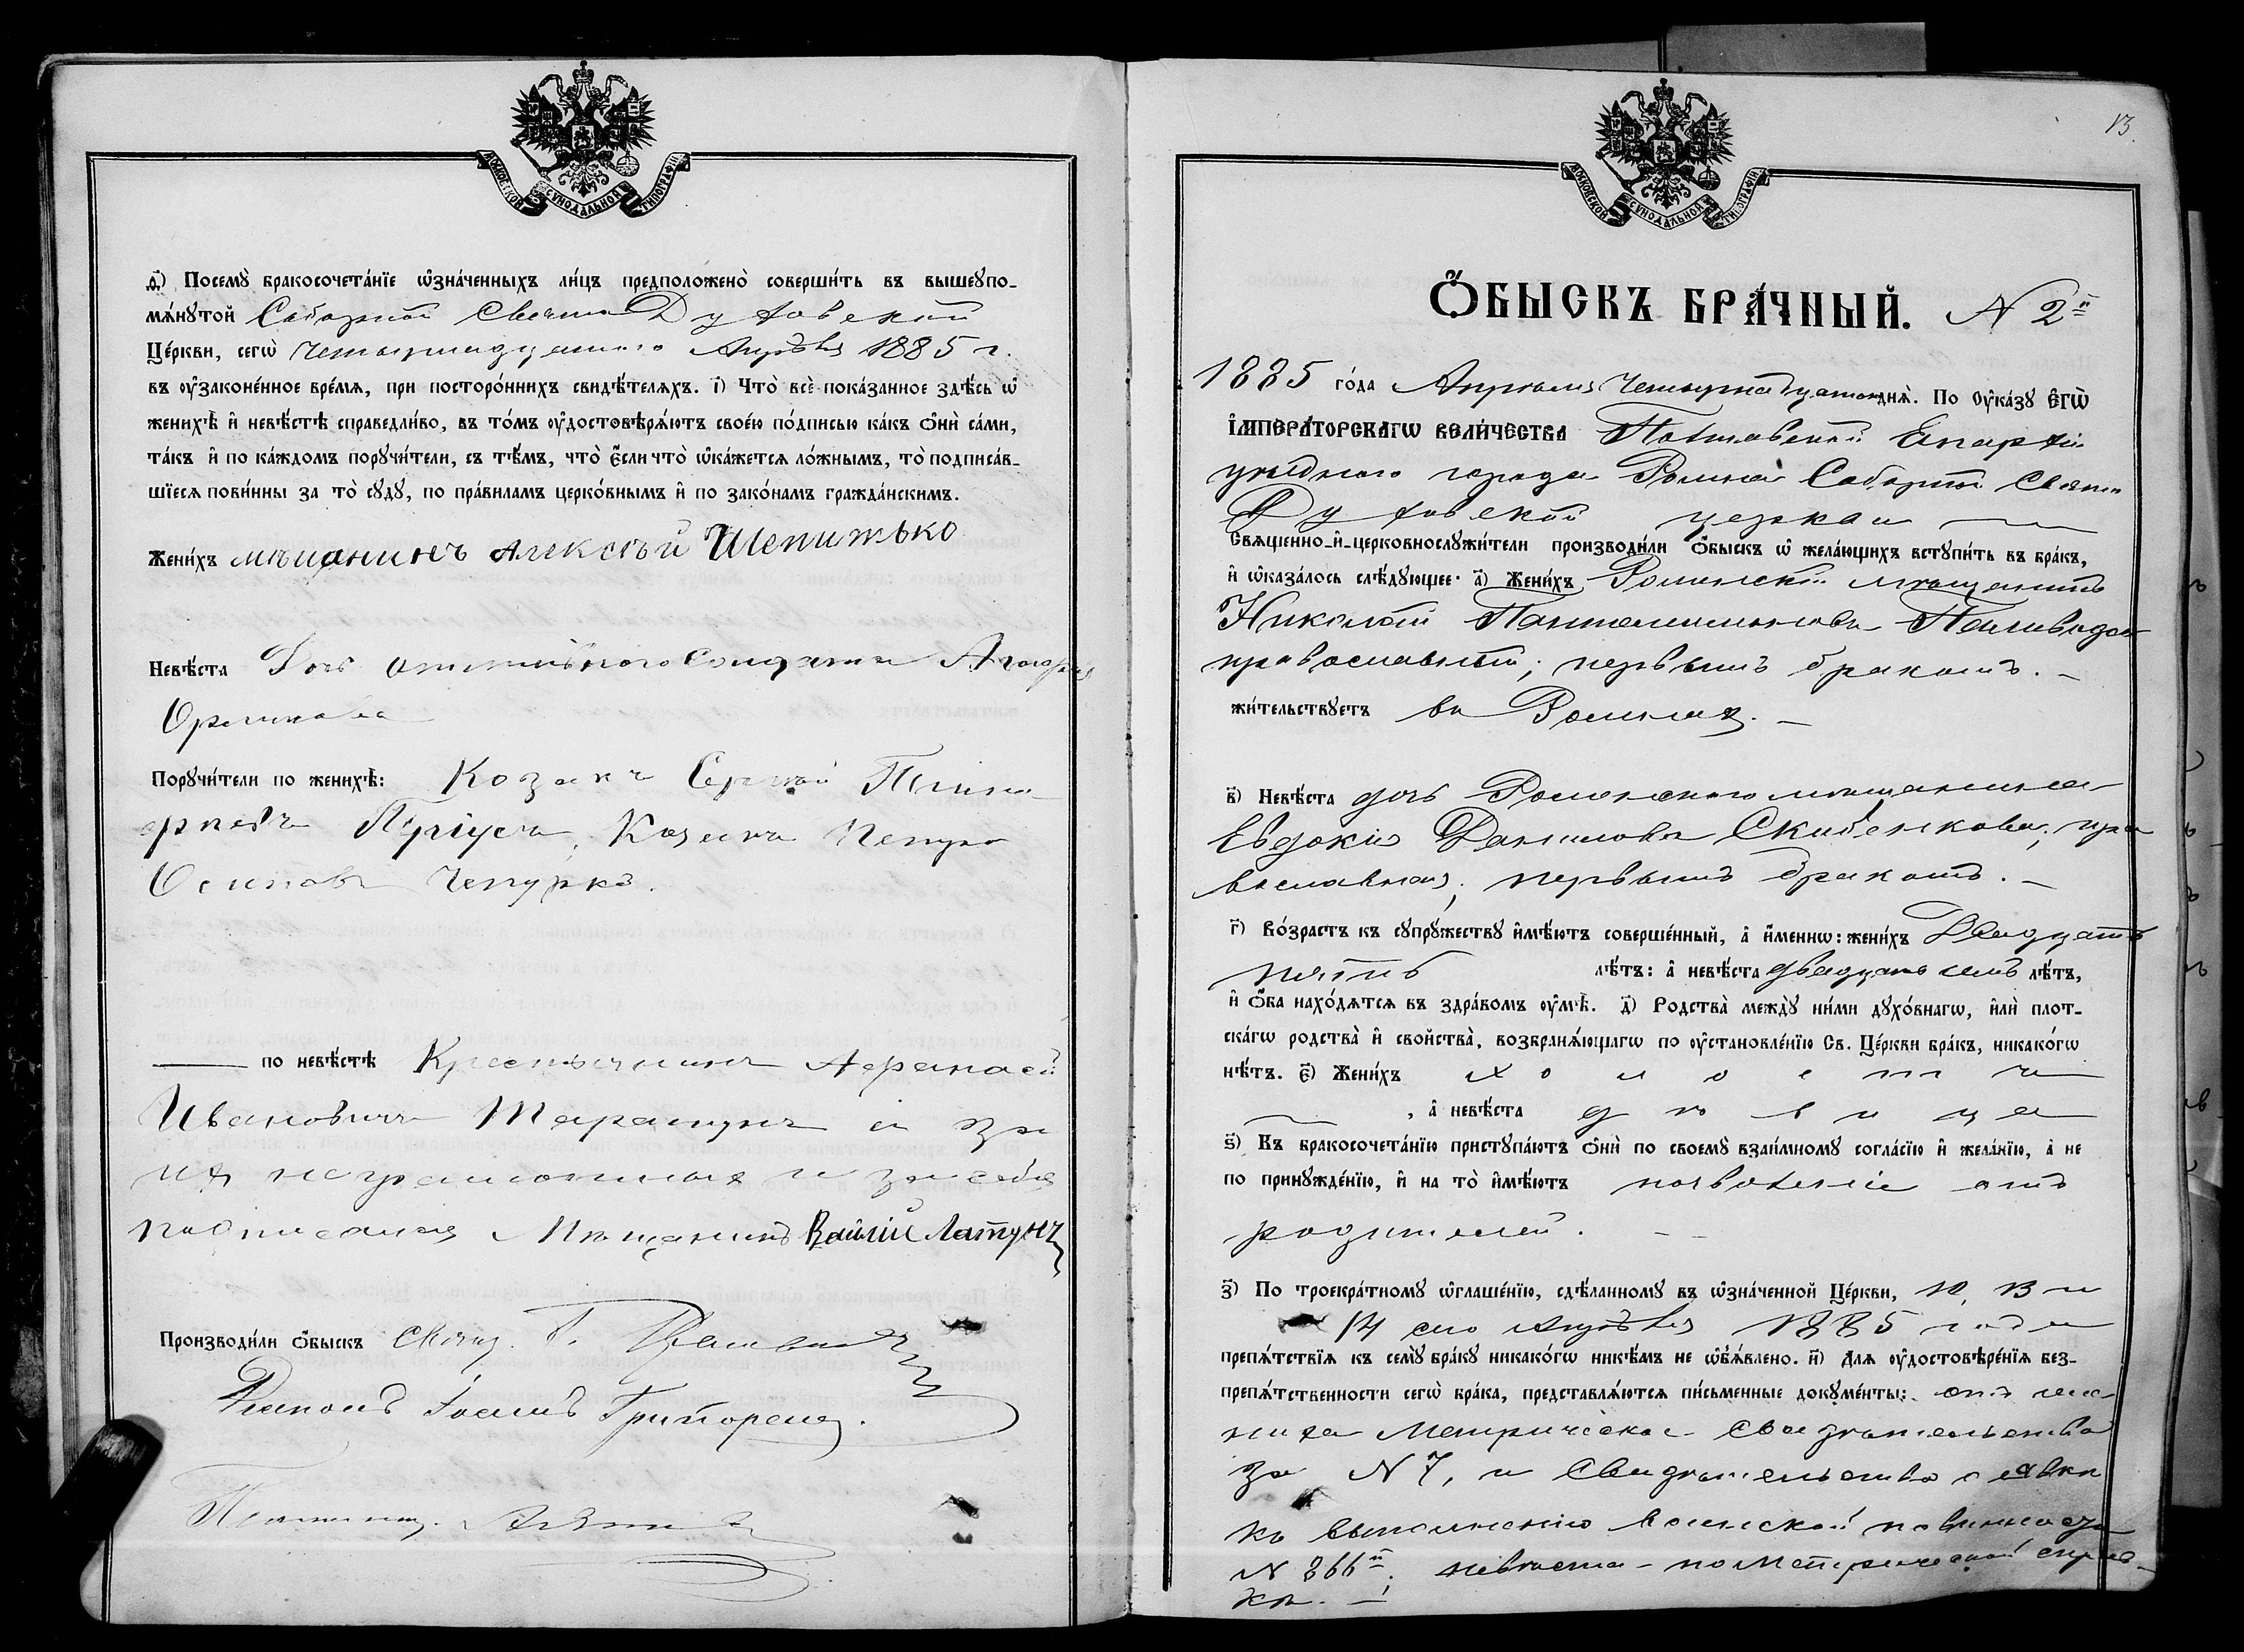 МОСКОВСКОЙ СУНОДАЛЬНОЙ ТИПОГРАФІИ
д҃) Посемꙋ̀ бракосочета́нїе ѡ҆зна́ченныхъ ли́цъ предположено̀ соверши́ть въ вышеꙋпо-
мѧ́нꙋтой Соборной Свято Духовской
Це́ркви, сегѡ̀ четырнадцатого Апрѣля 1885 г.
въ ᲂу҆законе́нное вре́мѧ, при посторо́ннихъ свидѣ́телѧхъ. і҃) Что̀ всѐ пока́занное здѣ́сь ѡ҆
женихѣ̀ и҆ невѣ́стѣ справедли́во, въ то́мъ ᲂу҆достовѣрѧ́ютъ свое́ю по́дписью ка́къ ѻ҆нѝ са́ми,
та́къ и҆ по ка́ждомъ порꙋчи́тели, съ тѣ́мъ, что̀ є҆́сли что̀ ѡ҆ка́жетсѧ ло́жнымъ, то̀ подписа́в-
шїесѧ пови́нны за то̀ сꙋдꙋ̀, по пра́виламъ церко́внымъ и҆ по зако́намъ гражда́нскимъ.
Жени́хъ мѣщанинъ Алексѣй Шепитько
Невѣ́ста Дочь солдата
Порꙋчи́тели по женихѣ̀: Козакъ Сергѣй
Козакъ Петръ
Осиповъ Чепурко.
по невѣ́стѣ Крестьянинъ Афанасій
Ивановичъ Тарапунъ и за
ихъ неграмотныхъ и за себя
подписался Мѣщанинъ Латунъ
Производи́ли ѻ҆́быскъ Свящ. Г.
Діаконъ Іоаннъ Григоренко.
МОСКОВСКОЙ СУНОДАЛЬНОЙ ТИПОГРАФІИ
13.
Ѻ҆́БЫСКЪ БРА́ЧНЫЙ. N 2й
1885 го́да Апрѣля Четырнадцатого днѧ̀. По ᲂу҆ка́зꙋ Є҆ГѠ̀
І҆МПЕРА́ТОРСКАГѠ ВЕЛИ́ЧЕСТВА Полтавской Епархіи
уѣзднаго города Роменъ Соборной Свято
Духовской церкви
Свѧще́нно-и҆-церковнослꙋжи́тели производи́ли ѻ҆́быск ѡ҆ жела́ющихъ встꙋпи́ть въ бра́къ,
и҆ ѡ҆каза́лось слѣ́дꙋющее: а҃) Жени́хъ Роменскій мѣщанинъ
Николай Пантелеимоновъ
православный; первымъ бракомъ.
жи́тельствꙋетъ въ Ромнахъ.
в҃) Невѣ́ста дочь Роменского мѣщанина
Евдокія Данилова Скибенкова, пра
вославная; первымъ бракомъ.
г҃) Во́зрастъ къ сꙋпрꙋ́жествꙋ и҆мѣ́ютъ соверше́нный, а҆ и҆́меннѡ: жени́хъ Двадцать
пять лѣ́тъ: а҆ невѣ́ста двадцать семь лѣ́тъ,
и҆ ѻ҆́ба нахо́дѧтсѧ въ здра́вомъ ᲂу҆мѣ̀. д҃) Родства̀ междꙋ̀ ни́ми дꙋхо́внагѡ, и҆лѝ плот-
ска́гѡ родства̀ и҆ сво́йства, возбранѧ́ющагѡ по ᲂу҆становле́нїю Св. Це́ркви бра́къ, никако́гѡ
нѣ́тъ. є҃) Жени́хъ холостъ
, а҆ невѣ́ста дѣвица
ѕ҃) Къ бракосочета́нїю пристꙋпа́ютъ ѻ҆нѝ по своемꙋ̀ взаи́мномꙋ согла́сїю и҆ жела́нїю, а҆ не
по принꙋжде́нїю, и҆ на то̀ и҆мѣ́ютъ позволеніе отъ
родителей.
з҃) По троекра́тномꙋ ѡ҆глаше́нїю, сдѣ́ланномꙋ въ ѡ҆зна́ченной Це́ркви, 10, 13 и
14 сего Апрѣля 1885 года
препѧ́тствїѧ къ семꙋ̀ бра́кꙋ никако́гѡ никѣ́мъ не ѡ҆б̾ѧ́влено. и҃) Длѧ ᲂу҆достовѣре́нїѧ без-
препѧ́тственности сегѡ̀ бра́ка, представлѧ́ютсѧ пи́сьменные докꙋме́нты: отъ же-
ниха Метрическое Свидѣтельство
за N 7, и Свидѣтельство о явкѣ
къ выполненію воинской повинности
N 366й, невѣста - по Метрической справ-
кѣ.